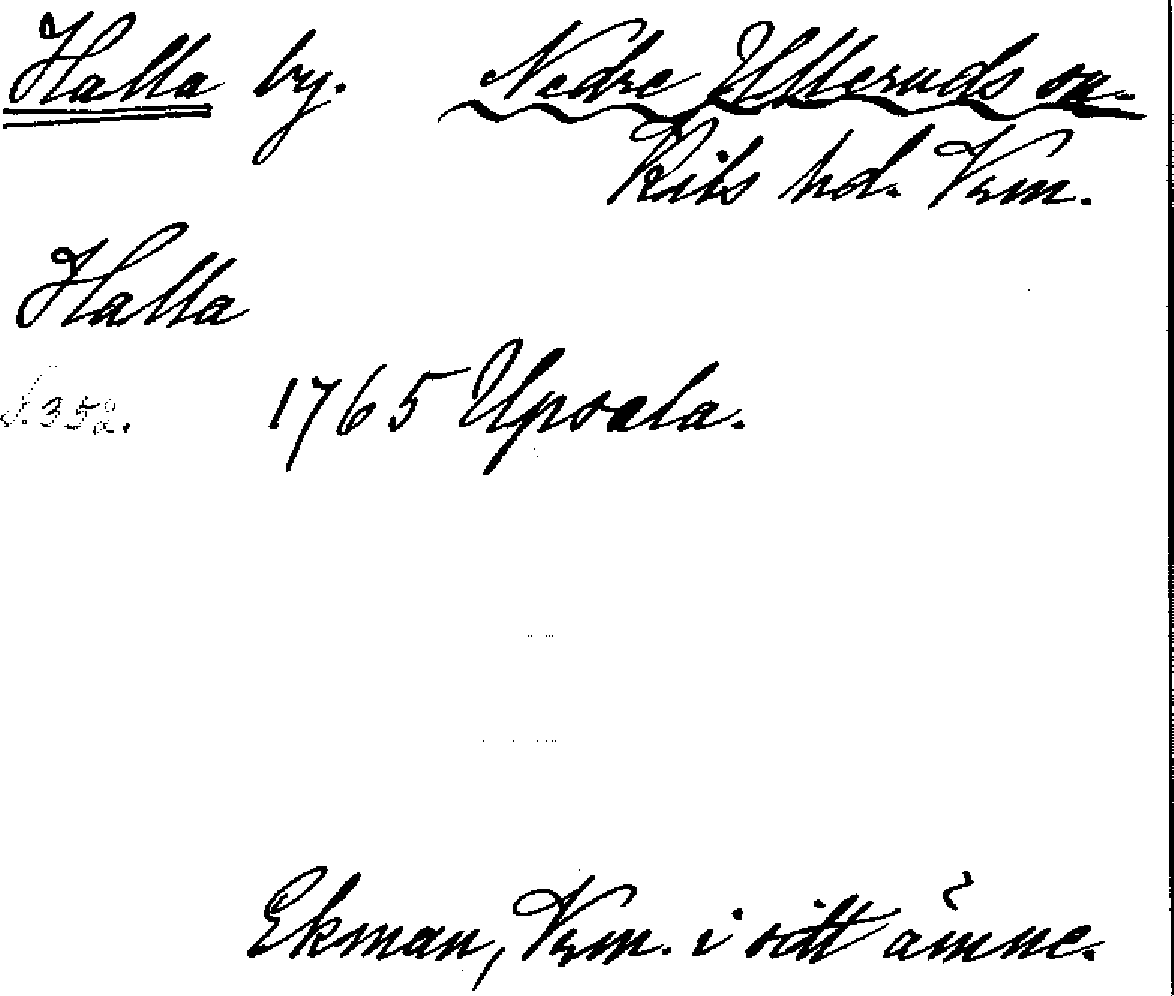 Halla by. Nedre Ulleruds sn.
Kils hd. Vrm.
Halla
S. 352. 1765 Upsala.
Ekman, Vrm. i sitt ämne.